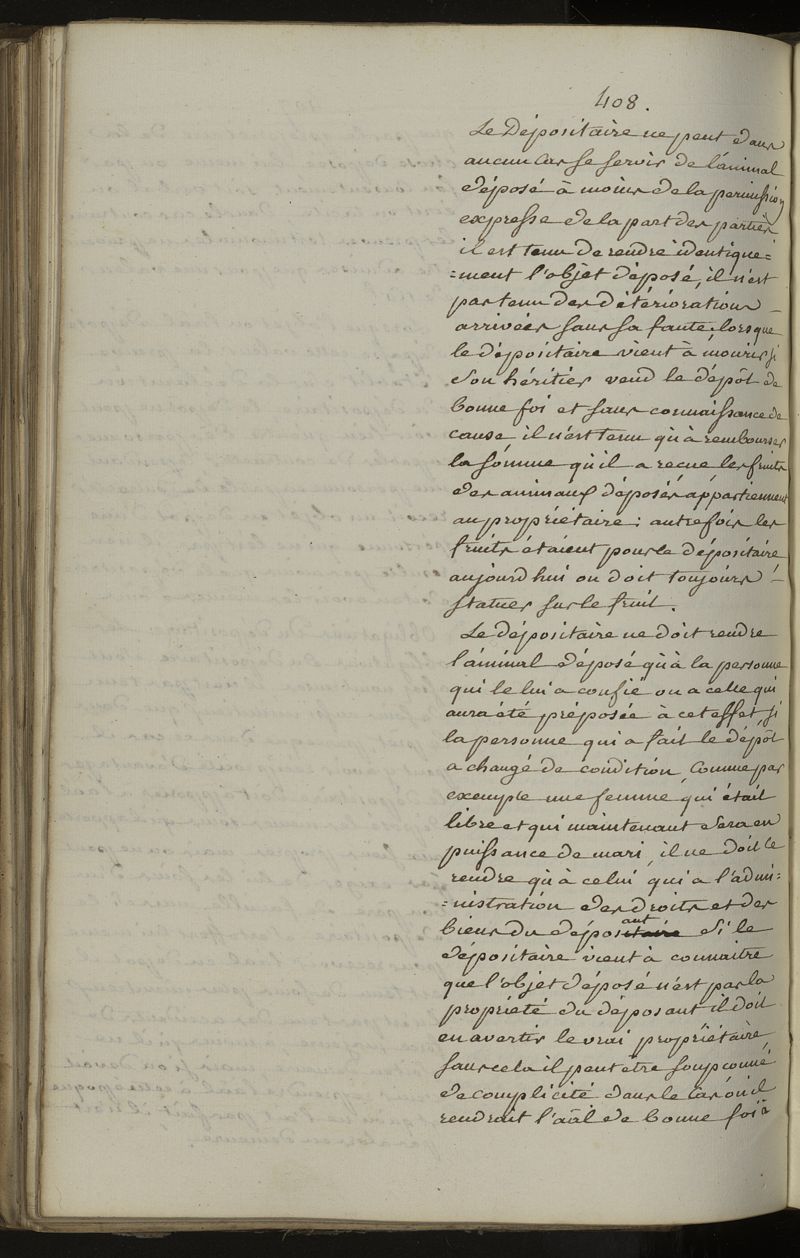 408.
Le Dépositaire ne peut dans
aucun Cas se servir de l'animal
déposé à moins de la permission
expresse de la part des parties
il est tenu de rendre identique=
=ment l'objet déposé, il n'est
pas tenu des détériorations
arrivées sans sa faute, lorsque
le dépositaire vient à mourir si
son héritier vend le dépôt de
bonne foi et sans connaissance de
cause, il n'est tenu qu'à rembourser
la somme qu'il a reçue les fruits
des animaux déposés appartiennent
au propriétaire; autrefois les
fruits étaient pour le dépositaire
aujourd'hui on doit toujours
statuer sur le fruit.
Le dépositaire ne doit rendre
l'animal déposé qu'à la personne
qui le lui a confié ou a celle qui
aura été préposée à cet effet si
la personne qui a fait le dépôt
a changé de condition, comme par
exemple une femme qui était
libre et qui maintenant sera en
puissance de mari, il ne doit le
rendre qu'à celui qui a l'admi=
=nistration des droits et des
biens du déposant si le
dépositaire vient à connaitre
que l'objet déposé n'est pas la
propriété du déposant il doit
en avertir le vrai propriétaire,
sans cela il peut être soupçonné
de complicité dans le cas où il
rendrait l'aâl de bonne foi à